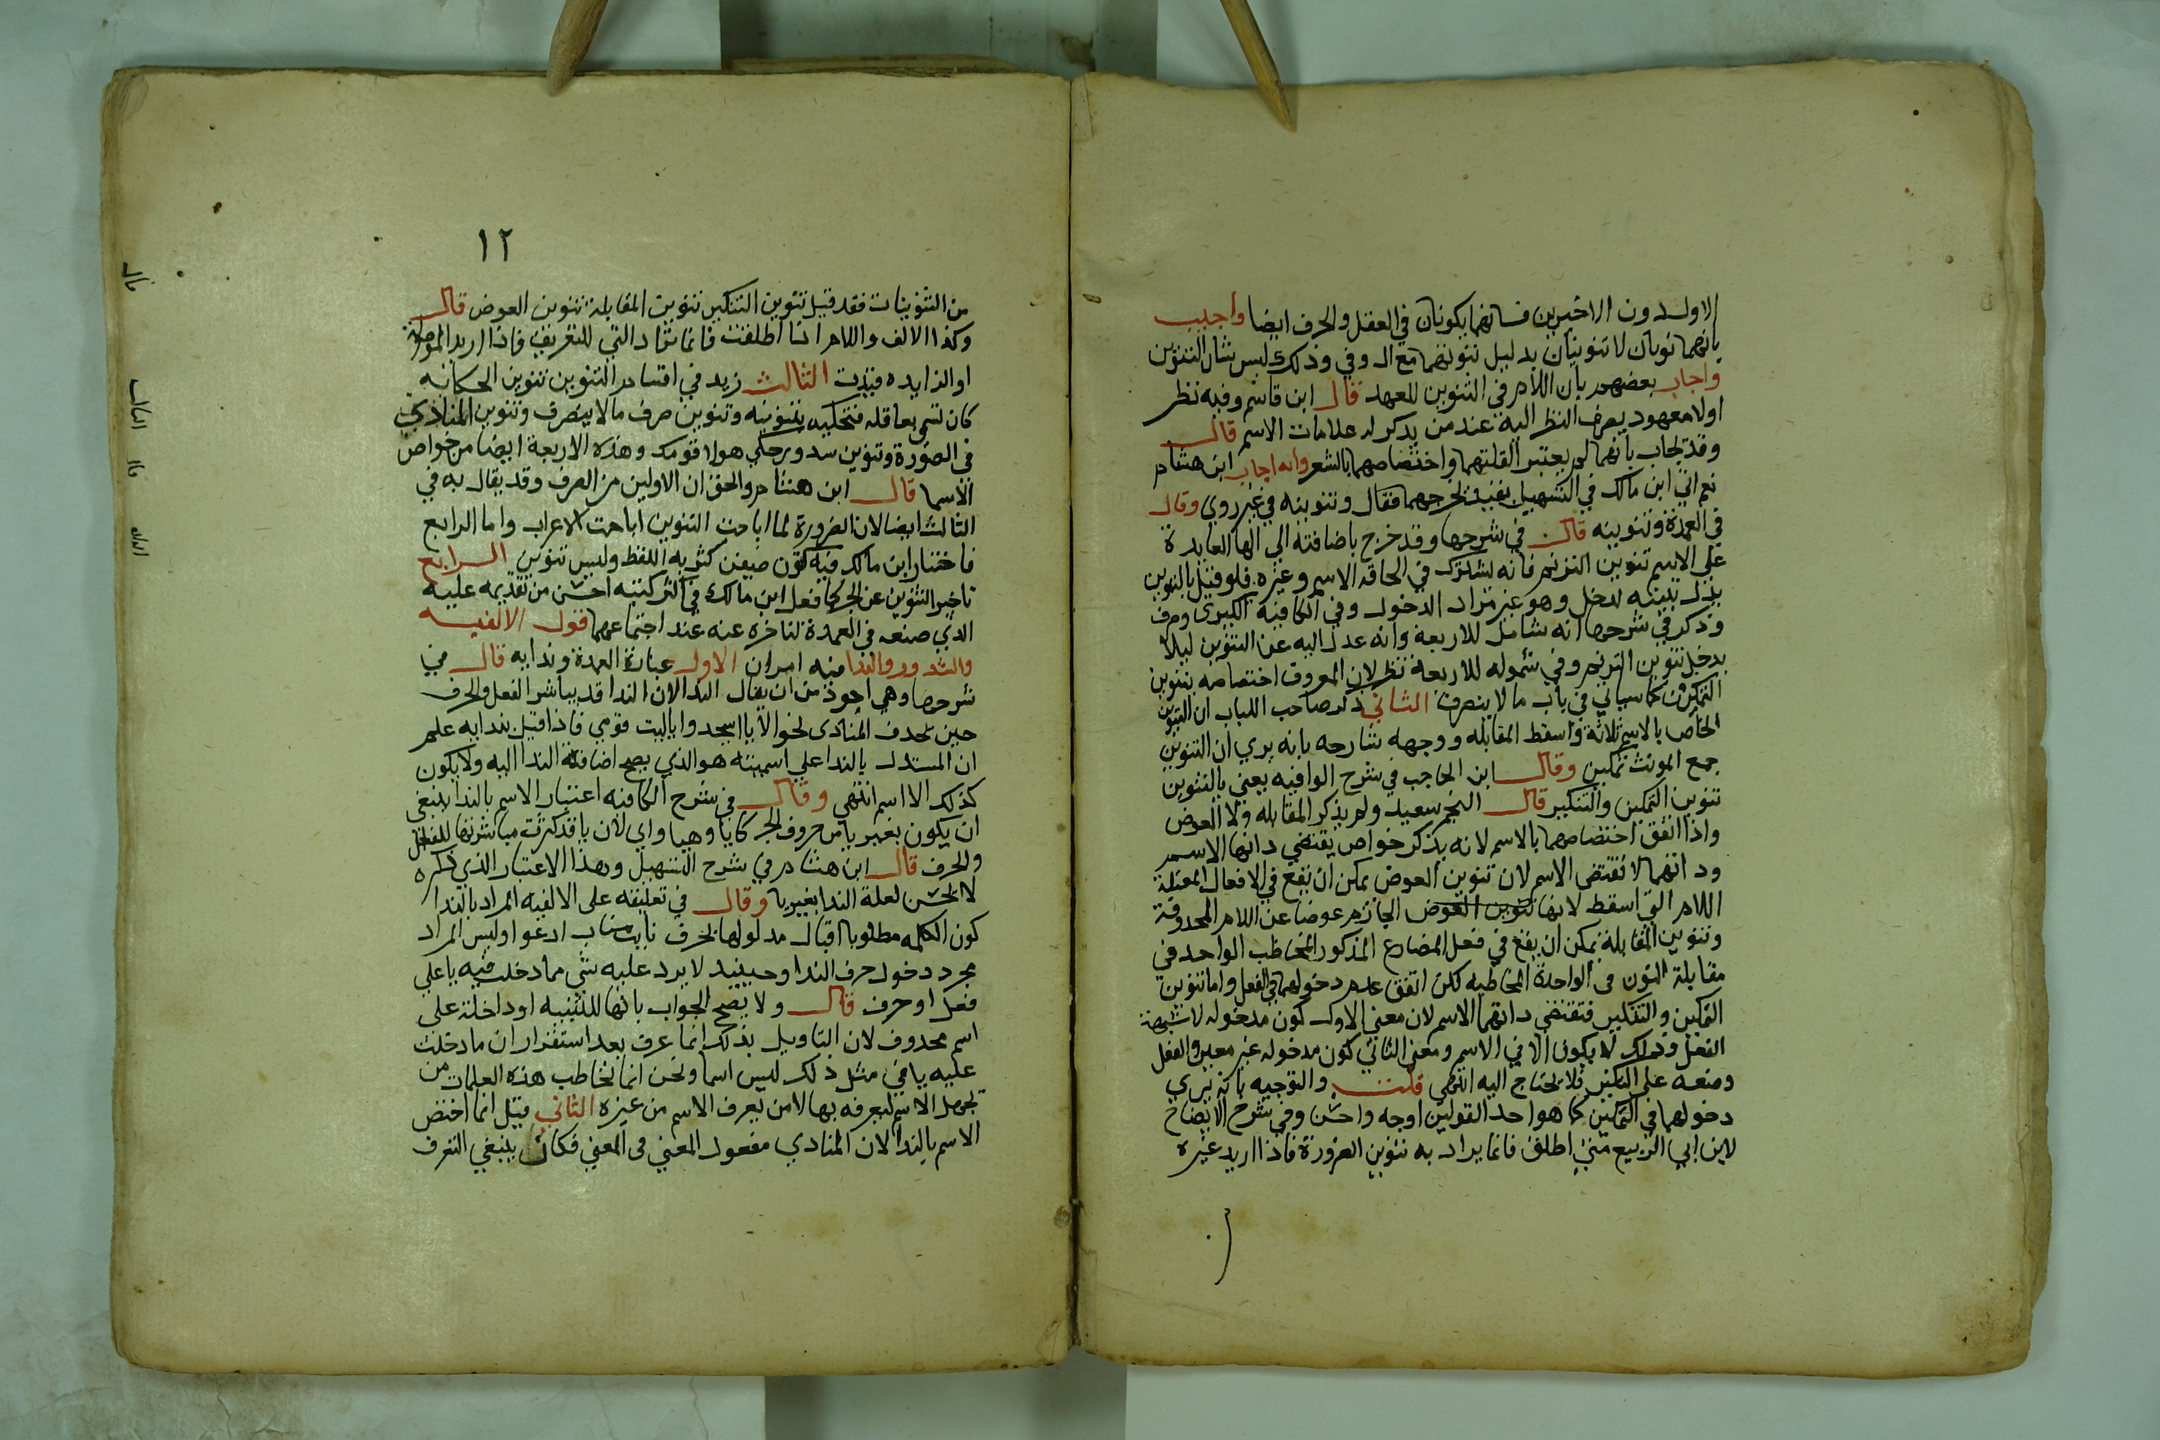 الاول دون الاخيرين فانهما يكونان في الفعل والحرف ايضا واجيب
بانهما نونان لا تنوينان بدليل ثبوتهما مع ال وفي وذلك ليس شان التنوين
واجاب بعضهم بان اللام في التنوين للعهد قال ابن قاسم وفيه نظر
اولا معهود يصرف النظر اليه عند من يذكر له علامات الاسم قال
وقد يجاب بانهما لم يعتبر القلتهما واختصاصهما بالشعر وانه اجاب ابن هشام
نعم اتي ابن مالك في التسهيل بقيد يخرجهما فقال وتنوينه في غير روي وقال
في العمدة وتنوينه قال في شرحها وقد خرج باضافته الي الها العايدة
على الاسم تنوين الترنم فانه يشترك في الحاقه الاسم وغيره فلو قيل بالتنوين
بدل تنوينه لدخل وهو غير مراد الدخول وفي الكافية الكبرى وصرف
وذكر في شرحها انه شامل للاربعة وانه عدل اليه عن التنوين ليلا
يدخل تنوين الترنم وفي شموله للاربعة نظر لان المعروف اختصاصه بتنوين
التمكين كما سياتي في باب ما لا ينصرف الثاني ذكر صاحب اللباب ان التنوين
الخاص بالاسم ثلاثة واسقط المقابله ووجهه شارحه بانه يري ان التنوين
جمع المونث تمكين وقال ابن الحاجب في شرح الوافيه يعني بالتنوين
تنوين التمكين والتنكير قال النجم سعيد ولم يذكر المقابله ولا العوض
واذا اتفق اختصاصهما بالاسم لانه يذكر خواص يقتضي ذاتها الاسم
وذاتهما لا تقتضي الاسم لان تنوين العوض يمكن ان يقع في الافعال المعتلة
اللام التي اسقط لانها تنوين العوض الجازم عوضا عن اللام المحذوفة
وتنوين المقابلة يمكن ان يقع في فعل المضارع المذكور المخاطب الواحد في
مقابلة النون في الواحدة المخاطبه لكن اتفق عدم دخولهما في الفعل واما تنوين
التمكين والتنكير فتقتضي ذاتهما الاسم لان معني الاول كون مدخوله لا شبهة
الفعل وذلك لا يكون الا في الاسم ومعني الثاني كون مدخوله غير معين والفعل
وضعه على التنكير فلا يحتاج اليه انتهي قلت والتوجيه بانه يري
دخولهما في التمكين كما هو احد القولين اوجه واحسن وفي شرح الايضاح
لابن ابي الربيع متي اطلق فانما يراد به تنوين الضرورة فاذا اريد غيره
١٢
من التنوينات فقد قيل تنوين التنكير تنوين المقابلة تنوين العوض قال
وكذا الالف واللام اذا اطلقت فانما تراد التي للتعريف فاذا اريد الموصولة
او الزايده قيدت الثالث زيد في اقسام التنوين تنوين الحكاية
كان تسمي بعاقله فتحكيه بتنوينه وتنوين صرف ما لا ينصرف وتنوين المنادي
في الضرورة وتنوين شذوذ حكي هولاء قومك وهذه الاربعة ايضا من خواص
الاسما قال ابن هشام والحق ان الاولين من الصرف وقد يقال به في
الثالث ايضا لان الضرورة لما اباحت التنوين اباحت الاعراب واما الرابع
فاختار ابن مالك فيه كون ضيفن كثر به اللفظ وليس تنوين الرابع
تاخير التنوين عن الجر كما فعل ابن مالك في اكثر كتبه احسن من تقديمه عليه
الذي صنعه في العمدة لتاخره عنه عند اجتماعهما قول الالفيه
والشذور والندا فيه امران الاول عبارة العمدة وندايه قال في
شرحها وهي اجود من ان يقال الندا لان الندا قد يباشر الفعل والحرف
حين يحذف المنادى نحو الا يا اسجدوا يا ليت قومي فاذا قيل بندايه علم
ان المستدل بالندا علي اسميته هو الذي يصح اضافة الندا اليه ولا يكون
كذلك الا اسم انتهي وقال في شرح الكافية اعتبار الاسم بالندا ينبغي
ان يكون بغير يا من حروف الجر كايا وهيا واي لان يا قد كثرت مباشرتها للفعل
والحرف قال ابن هشام في شرح التسهيل وهذا الاعتبار الذي ذكره
لا يحسن لعلة الندا بغير يا وقال في تعليقه على الالفيه المراد بالندا
كون الكلمه مطلوبا اقبال مدلولها بحرف نايب مناب ادعوا وليس المراد
مجرد دخول حرف الندا وحينيذ لا يرد عليه شي مما دخلت فيه يا علي
فعل او حرف قال ولا يصح الجواب بانها للتنبيه او داخلة على
اسم محذوف لان التاويل بذلك انما عرف بعد استقرار ان ما دخلت
عليه يا في مثل ذلك ليس اسما ونحن انما نخاطب هذه العلامات من
يجهل الاسم ليعرفه بها لا من يعرف الاسم من غيره الثاني قيل انما اختص
الاسم بالندا لان المنادي مفعول المعني في المعني فكان ينبغي التعرف